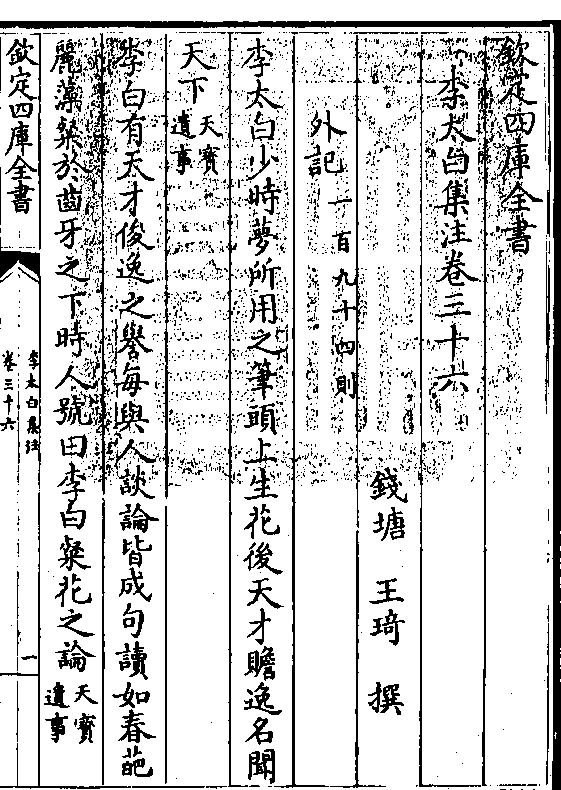 欽定四庫全書
李太白集注卷三十六
錢塘 王琦 撰
外記一百九十四則
李太白少時夢所用之筆頭上生花後天才贍逸名聞
天下天寳遺事
李白有天才俊逸之譽每與人談論皆成句讀如春葩
麗藻粲於齒牙之下時人號曰李白粲花之論天寳遺事
欽定四庫全書
李太白集注
卷三十六
一